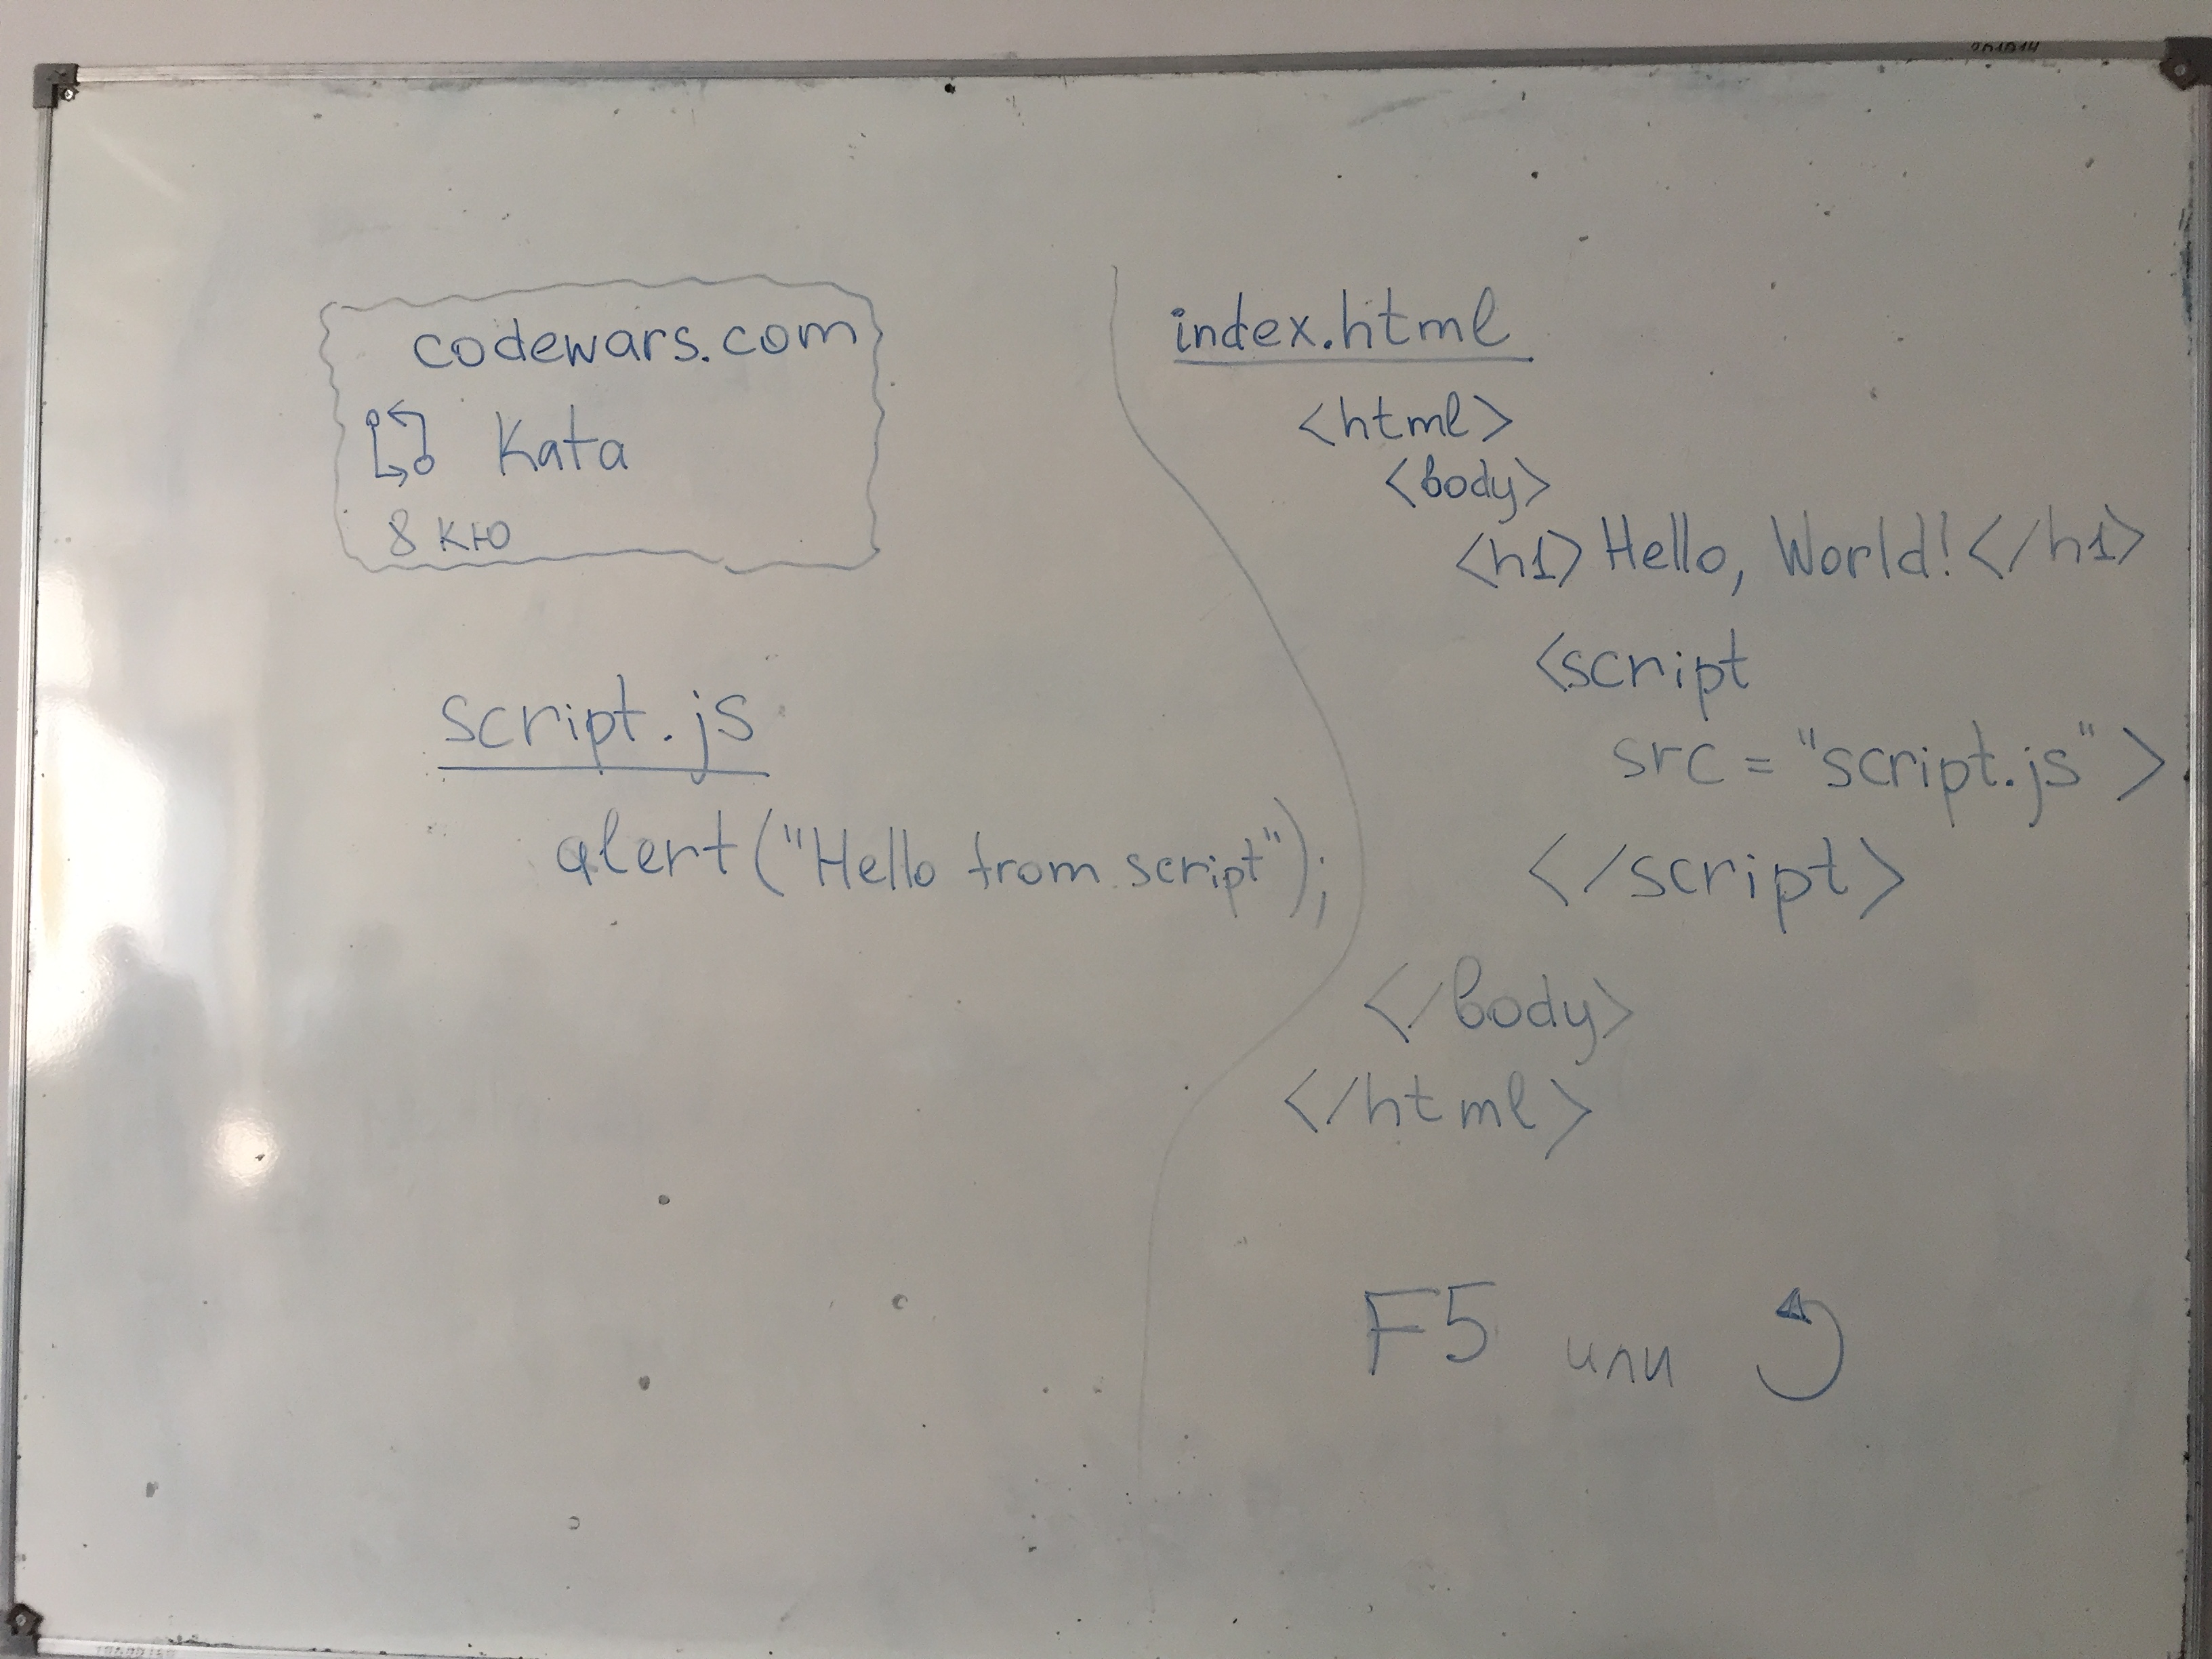 codewars.com
Kata
8 кю
script.js
alert("Hello from script");
index.html
<html>
<body>
<h1>Hello, World!</h1>
<script
src = "script.js">
</script>
</body>
</html>
F5 или